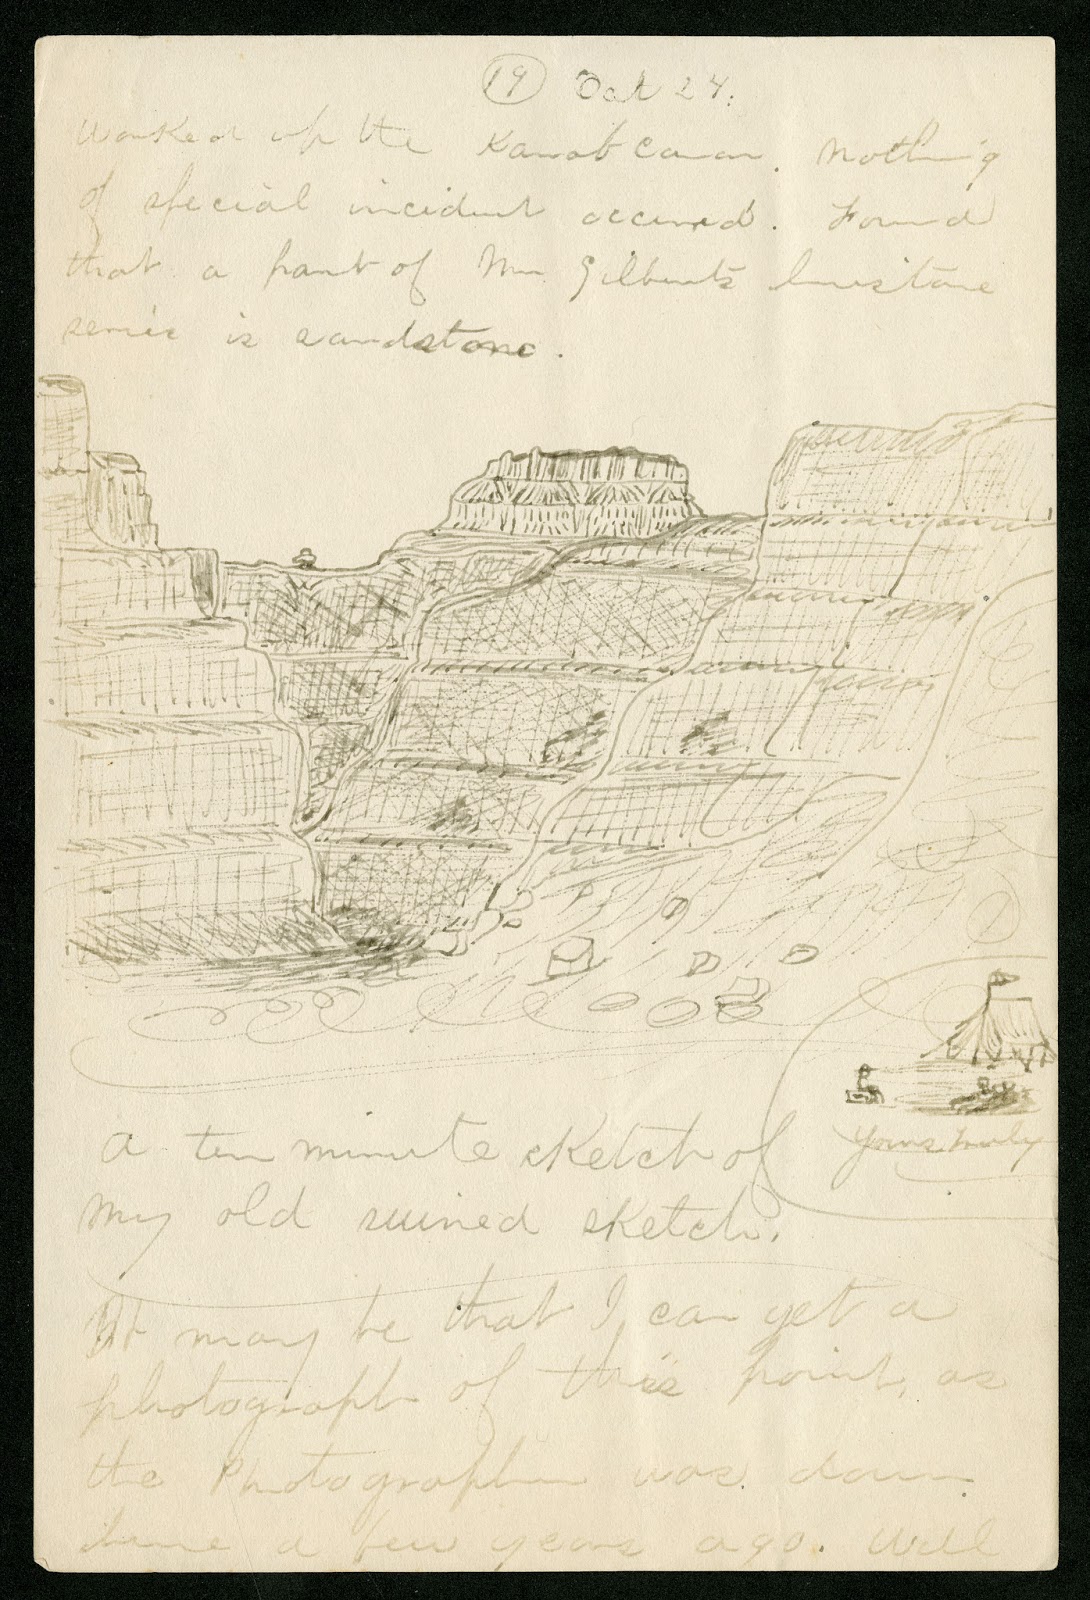 19 Oct 24.
Worked up the Kanab Canon. Nothing
of special incident occured. Found
that a part of Mr Gilberts limestone
serie is sandstone.
Yours truly
A ten minute sketch of
my old ruined sketch.
It may be that I can get a
photograph of this point, as
the Photographer was down
here a few years ago. Will